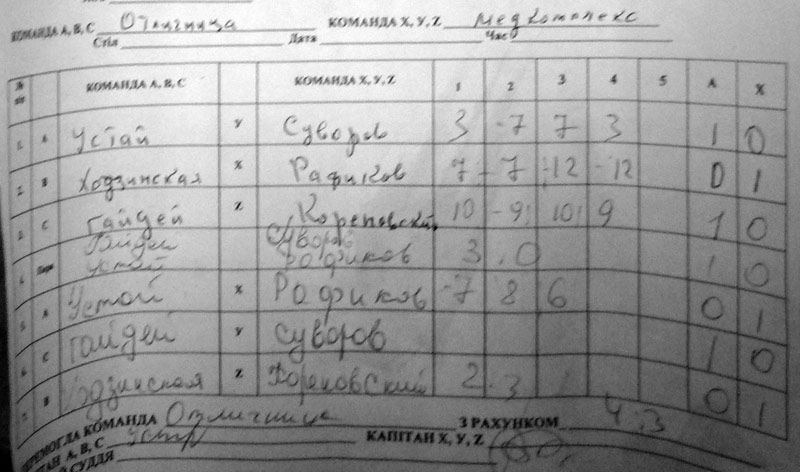 КОМАНДА А, В, С Отличница КОМАНДА X, Y, Z Медкомплекс
Стіл Дата Час
КОМАНДА А, В, С КОМАНДА X, Y, Z 1 2 3 4 5 А X
1. А Устай Y Суворов 3 -7 7 3 1 0
2. В Ходзинская X Рафиков 7 -7 -12 -12 0 1
3. С Гайдей Z Кореновский 10 -9 10 9 1 0
4. Пара Гайдей Суворов
Устай Рафиков 3 0 1 0
5. А Устай X Рафиков -7 8 6 0 1
6. С Гайдей Y Суворов 1 0
7. В Ходзинская Z Кореновский 2 3 0 1
ПЕРЕМОГЛА КОМАНДА Отличница З РАХУНКОМ 4:3
КАПІТАН А, В, С КАПІТАН X, Y, Z
СУДДЯ